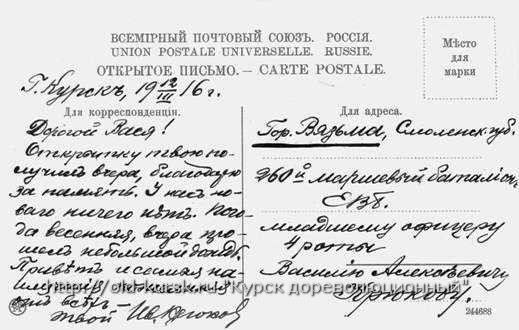 ВСЕМІРНЫЙ ПОЧТОВЫЙ СОЮЗЪ. РОССІЯ.
UNION POSTALE UNIVERSELLE. RUSSIE.
ОТКРЫТОЕ ПИСЬМО. — CARTE POSTALE.
Мѣсто
для
марки
Г. Курскъ, 19 12/III 16 г.
Для корреспонденціи.
Дорогой Вася!
Открытку твою по-
лучилъ вчера, благодарю
за память. У насъ но-
ваго ничего нѣтъ. Пого-
да весенняя, вчера про-
шелъ небольшой дождь.
Привѣтъ и
отъ всѣхъ —
твой
Для адреса.
Гор. Вязьма, Смоленск. губ.
260й маршевый баталіон,
ЕВБ.
младшему офицеру
4 роты
Василію Алексѣевичу
Крюкову.
http://old-kursk.ru/ "Курск дореволюционный"
244688